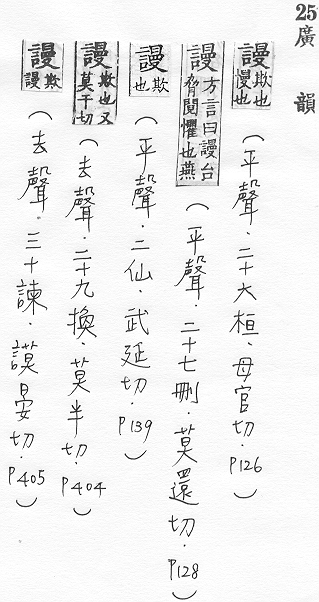 25廣韻
謾欺也慢也(平聳.二十六桓、母官切.P126)
謾方言曰謾台脅鬩懼也燕(平聲.二十七刪.莫還切.P128)
謾欺也(平聲.二仙.武延切.P139)
謾欺也又莫干切(去聲.二十九換.莫半切.P404)
謾欺謾(去聲.三十諫.謨晏切.P405)